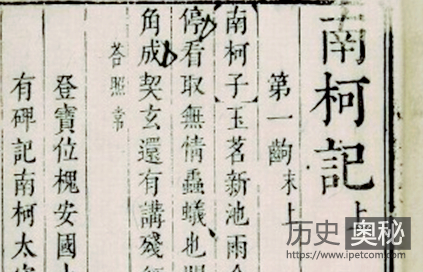 南柯記上
第一齣末上
南柯子】玉茗新池雨金
停看取無情蟲蟻也關
角成契玄還有講殘經
答照常
登寶位槐安國土
有碑記南柯太守
历史奥秘
http://www.ipetcom.com